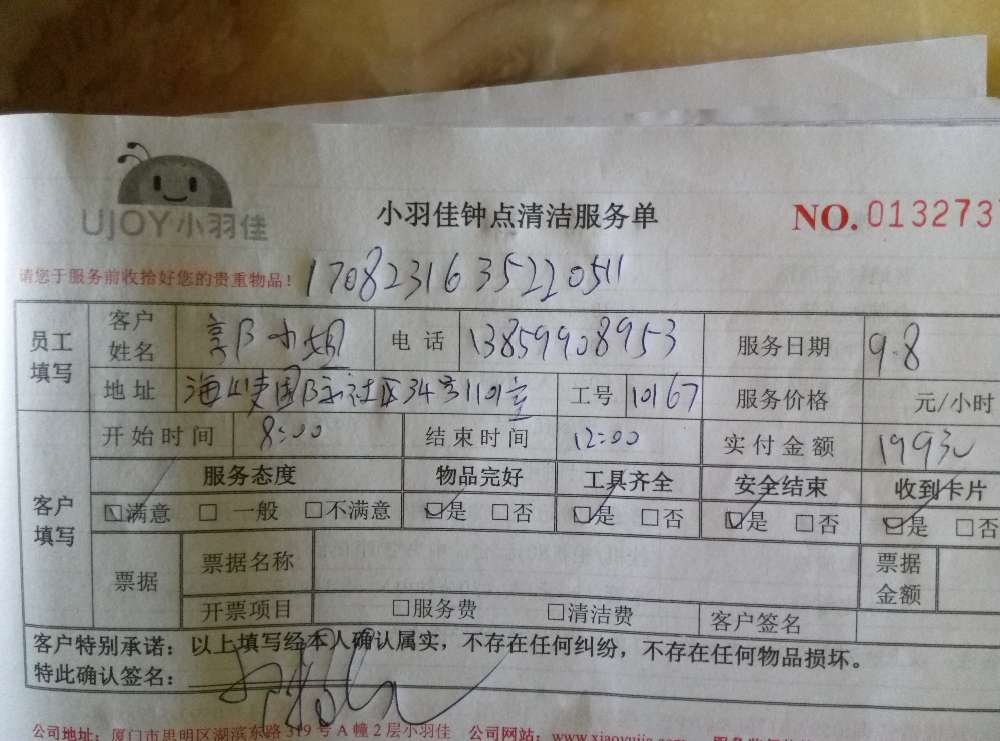 UJOY小羽佳
小羽佳钟点清洁服务单
NO. 013273
请您于服务前收拾好您的贵重物品！ 1708231635220511
员工填写 客户姓名 郭小姐 电话 13859908953 服务日期 9.8
地址 海岸国际社区34号1101室 工号 10167 服务价格 元/小时
客户填写 开始时间 8:00 结束时间 12:00 实付金额
服务态度 物品完好 工具齐全 安全结束 收到卡片
☑满意 □一般 □不满意 ☑是 □否 ☑是 □否 ☑是 □否 ☑是 □否
票据 票据名称 票据金额
开票项目 □服务费 □清洁费 客户签名
客户特别承诺：以上填写经本人确认属实，不存在任何纠纷，不存在任何物品损坏。
特此确认签名：
公司地址：厦门市思明区湖滨东路319号A幢2层小羽佳 公司网站：www.xiaoyujia.com